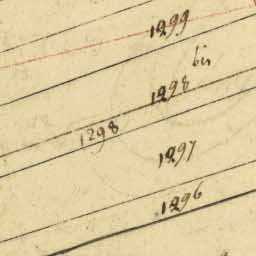 1299
bis
1298
1298
1297
1296